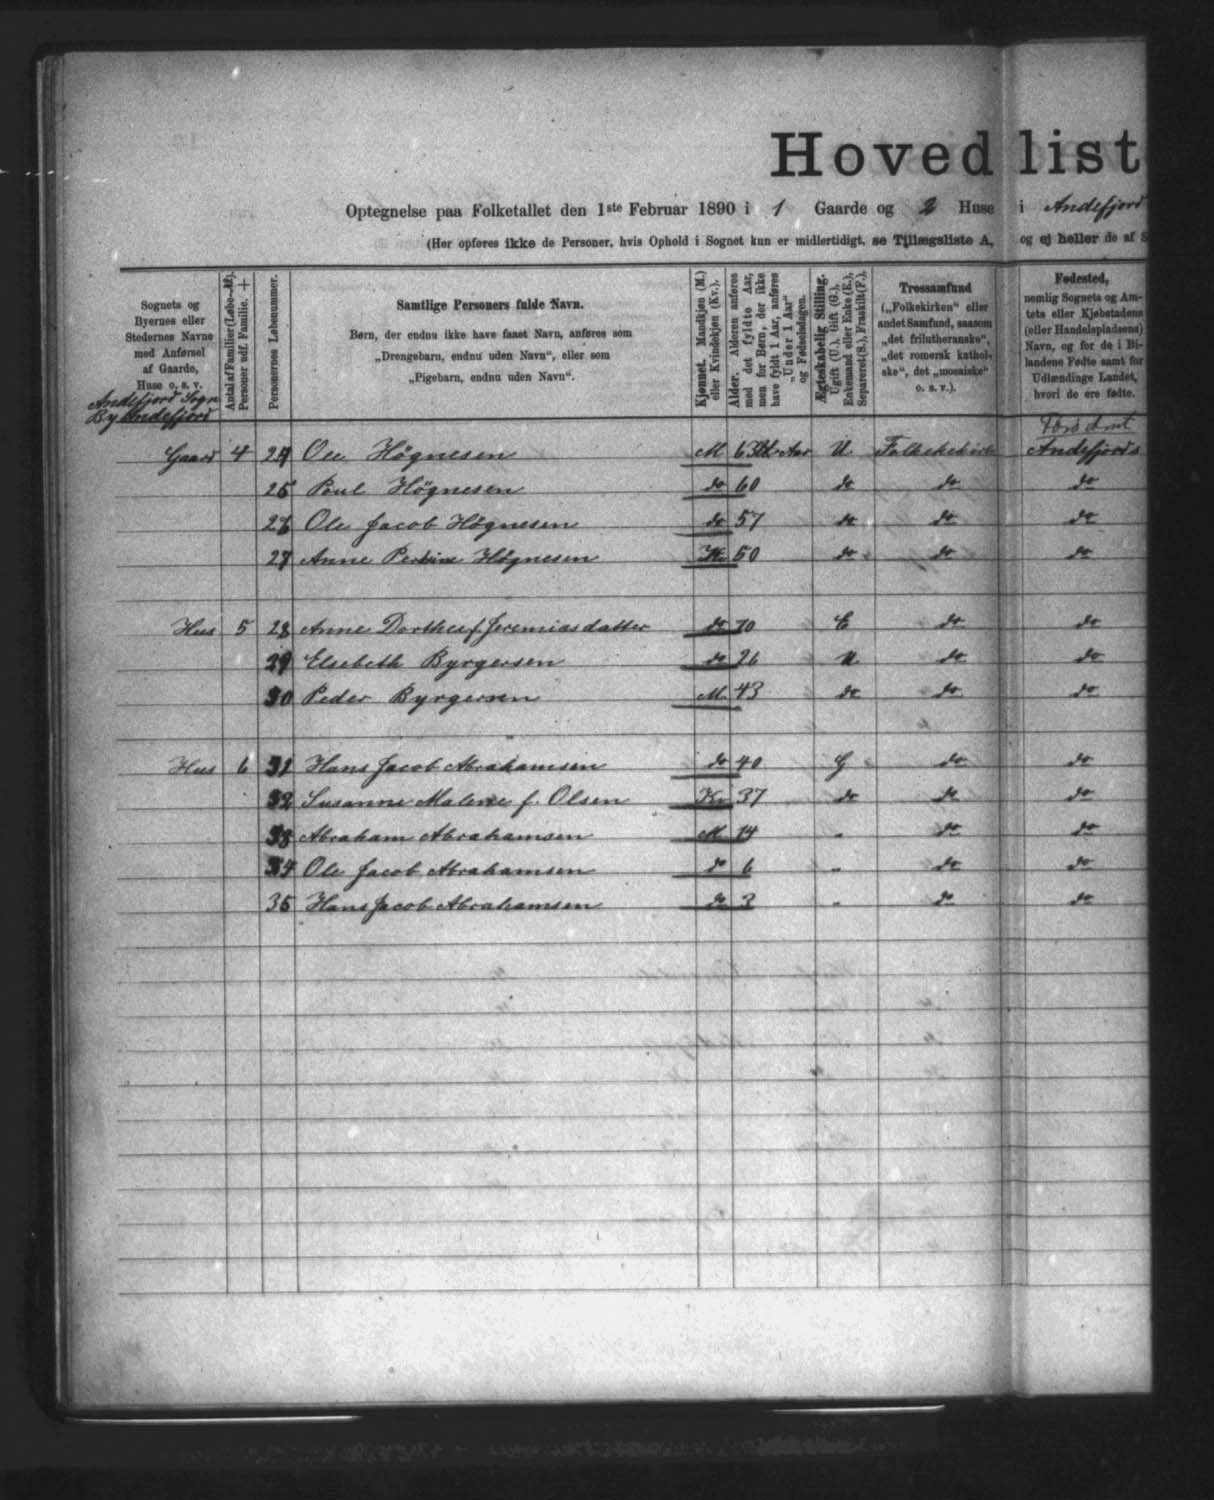 Hovedlist
Optegnelse paa Folketallet den 1ste Februar 1890 i 1 Gaarde og 2 Huse i Andefjord
(Her opføres ikke de Personer, hvis Ophold i Sognet kun er midlertidigt, se Tillægsliste A, og ej heller de af S
Sognets og Byernes eller Stedernes Navne med Anførsel af Gaarde, Huse o. s. v.
Andefjord Sogn
By Andefjord
Antal af Familier (Løbe-№). Personer udf. Familie. +
Personernes Løbenummer.
Samtlige Personers fulde Navn.
Børn, der endnu ikke have faaet Navn, anføres som
„Drengebarn, endnu uden Navn“, eller som
„Pigebarn, endnu uden Navn“.
Kjønnet. Mandkjøn (M.) eller Kvindekjøn (Kv.).
Alder. Alderen anføres med det fyldte Aar, men for Børn, der ikke have fyldt 1 Aar, anføres „Under 1 Aar“ og Fødselsdagen.
Ægteskabelig Stilling. Ugift (U.), Gift (G.), Enkemand eller Enke (E.), Separeret (S.), Fraskilt (F.),
Trossamfund
(„Folkekirken“ eller andet Samfund, saasom „det frilutheranske“, „det romersk katholske“, det „mosaiske“ o. s. v.).
Fødested,
nemlig Sognets og Amtets eller Kjøbstadens (eller Handelspladsens) Navn, og for de i Bilandene Fødte samt for Udlændinge Landet, hvori de ere fødte.
Færø Amt
Gaard 4 24 Ole Högnesen M 63 Aar U Folkekirke Andefjords
25 Poul Högnesen do 60 do do do
26 Ole Jacob Högnesen do 57 do do do
27 Anne Högnesen Kv 50 do do do
Hus 5 28 Anne Dorthea f. Jeremiasdatter do 70 E do do
29 Elsebeth Byrgersen do 26 U do do
30 Peder Byrgersen M. 43 do do do
Hus 6 31 Hans Jacob Abrahamsen do 40 G do do
32 Susanne Malene f. Olsen Kv 37 do do do
33 Abraham Abrahamsen M 14 „ do do
34 Ole Jacob Abrahamsen do 6 „ do do
35 Hans Jacob Abrahamsen do 3 „ do do